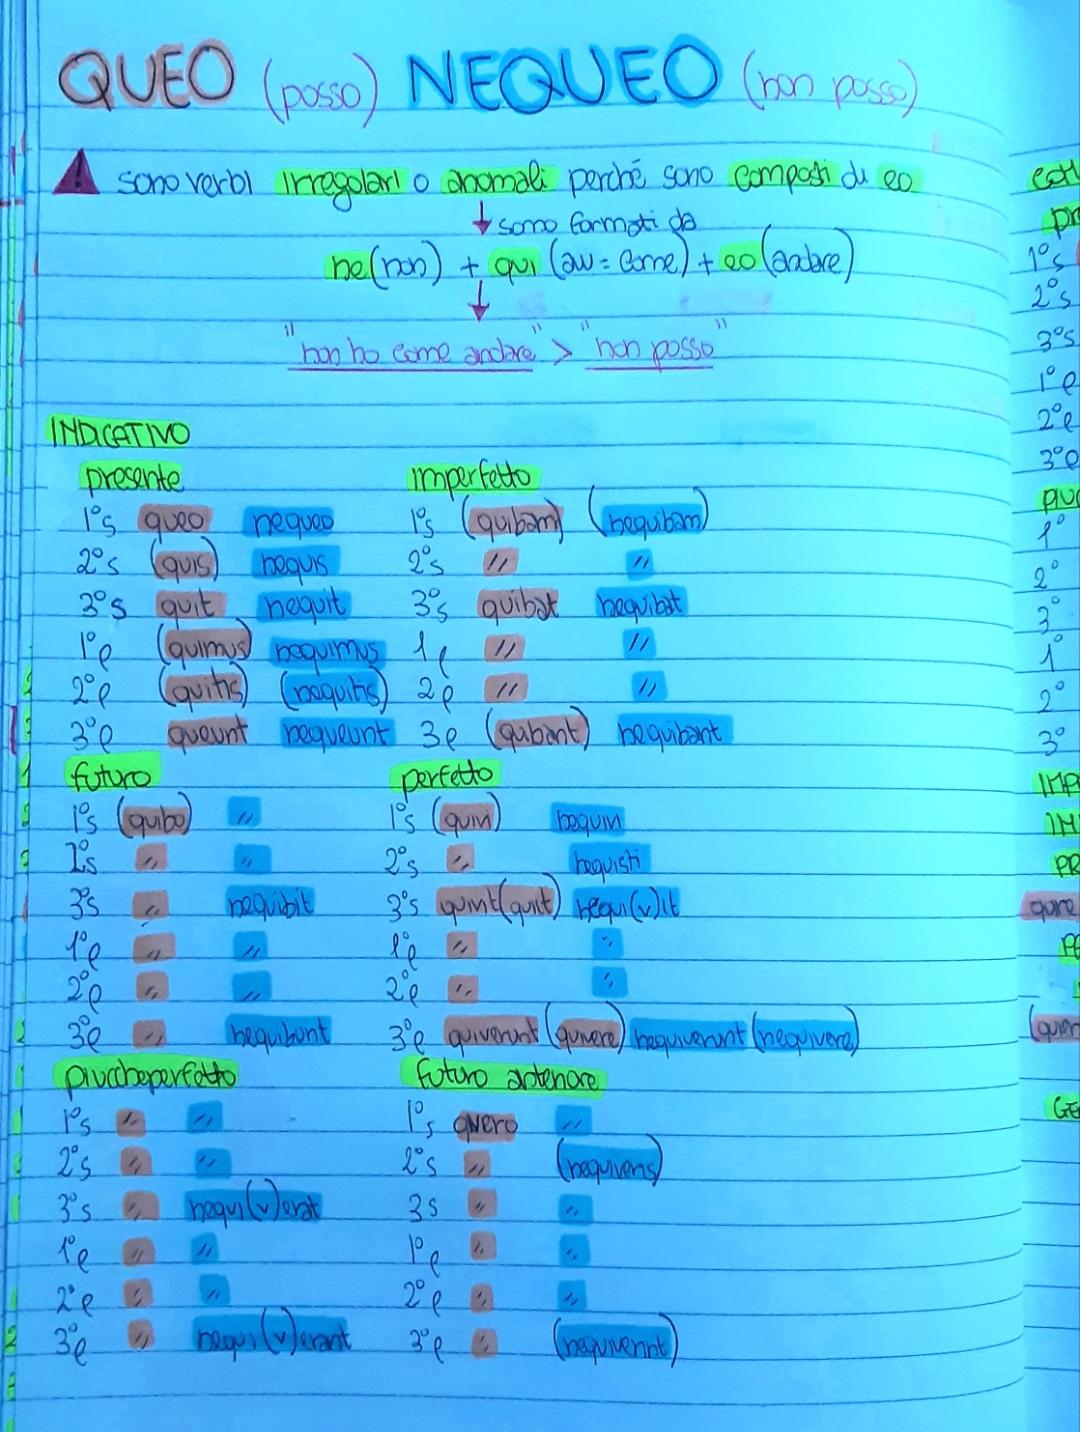 QUEO (posso) NEQUEO (non posso)
sono verbi irregolari o anomali perché sono composti di eo
sono formati da
ne (non) + qui (avv = come) + eo (andare)
"non ho come andare" > "non posso"
INDICATIVO
presente
1°s queo nequeo
2°s (quis) nequis
3°s quit nequit
1°p (quimus) nequimus
2°p (quitis) (nequitis)
3°p queunt nequeunt
imperfetto
1°s (quibam) (nequibam)
2°s // //
3°s quibat nequibat
1p // //
2p // //
3p (quibant) nequibant
futuro
1°s (quibo) //
2°s // //
3°s // nequibit
1°p // //
2°p // //
3°p // nequibunt
perfetto
1°s (quivi) nequivi
2°s // nequisti
3°s quivit (quit) nequi(v)it
1°p // //
2°p // //
3°p quiverunt (quivere) nequiverunt (nequivere)
piuccheperfetto
1°s // //
2°s // //
3°s // nequi(v)erat
1°p // //
2°p // //
3°p // nequi(v)erant
futuro anteriore
1°s quiero //
2°s // (nequiveris)
3s // //
1°p // //
2°p // //
3°p // (nequiverint)
1°s
2°s
3°s
1°p
2°p
3°p
1°
2°
3°
1°
2°
3°